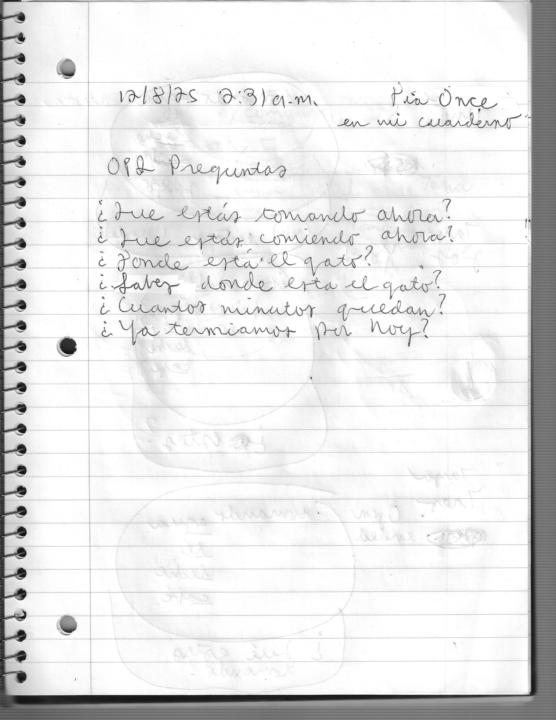 12/8/25 2:31 a.m. Día Once
en mi cuarderno
OPI Preguntas
¿Que estás tomando ahora?
¿Que estás comiendo ahora?
¿Donde está el gato?
¿Sabes donde esta el gato?
¿Cuantos minutos quedan?
¿Ya termiamos por hoy?